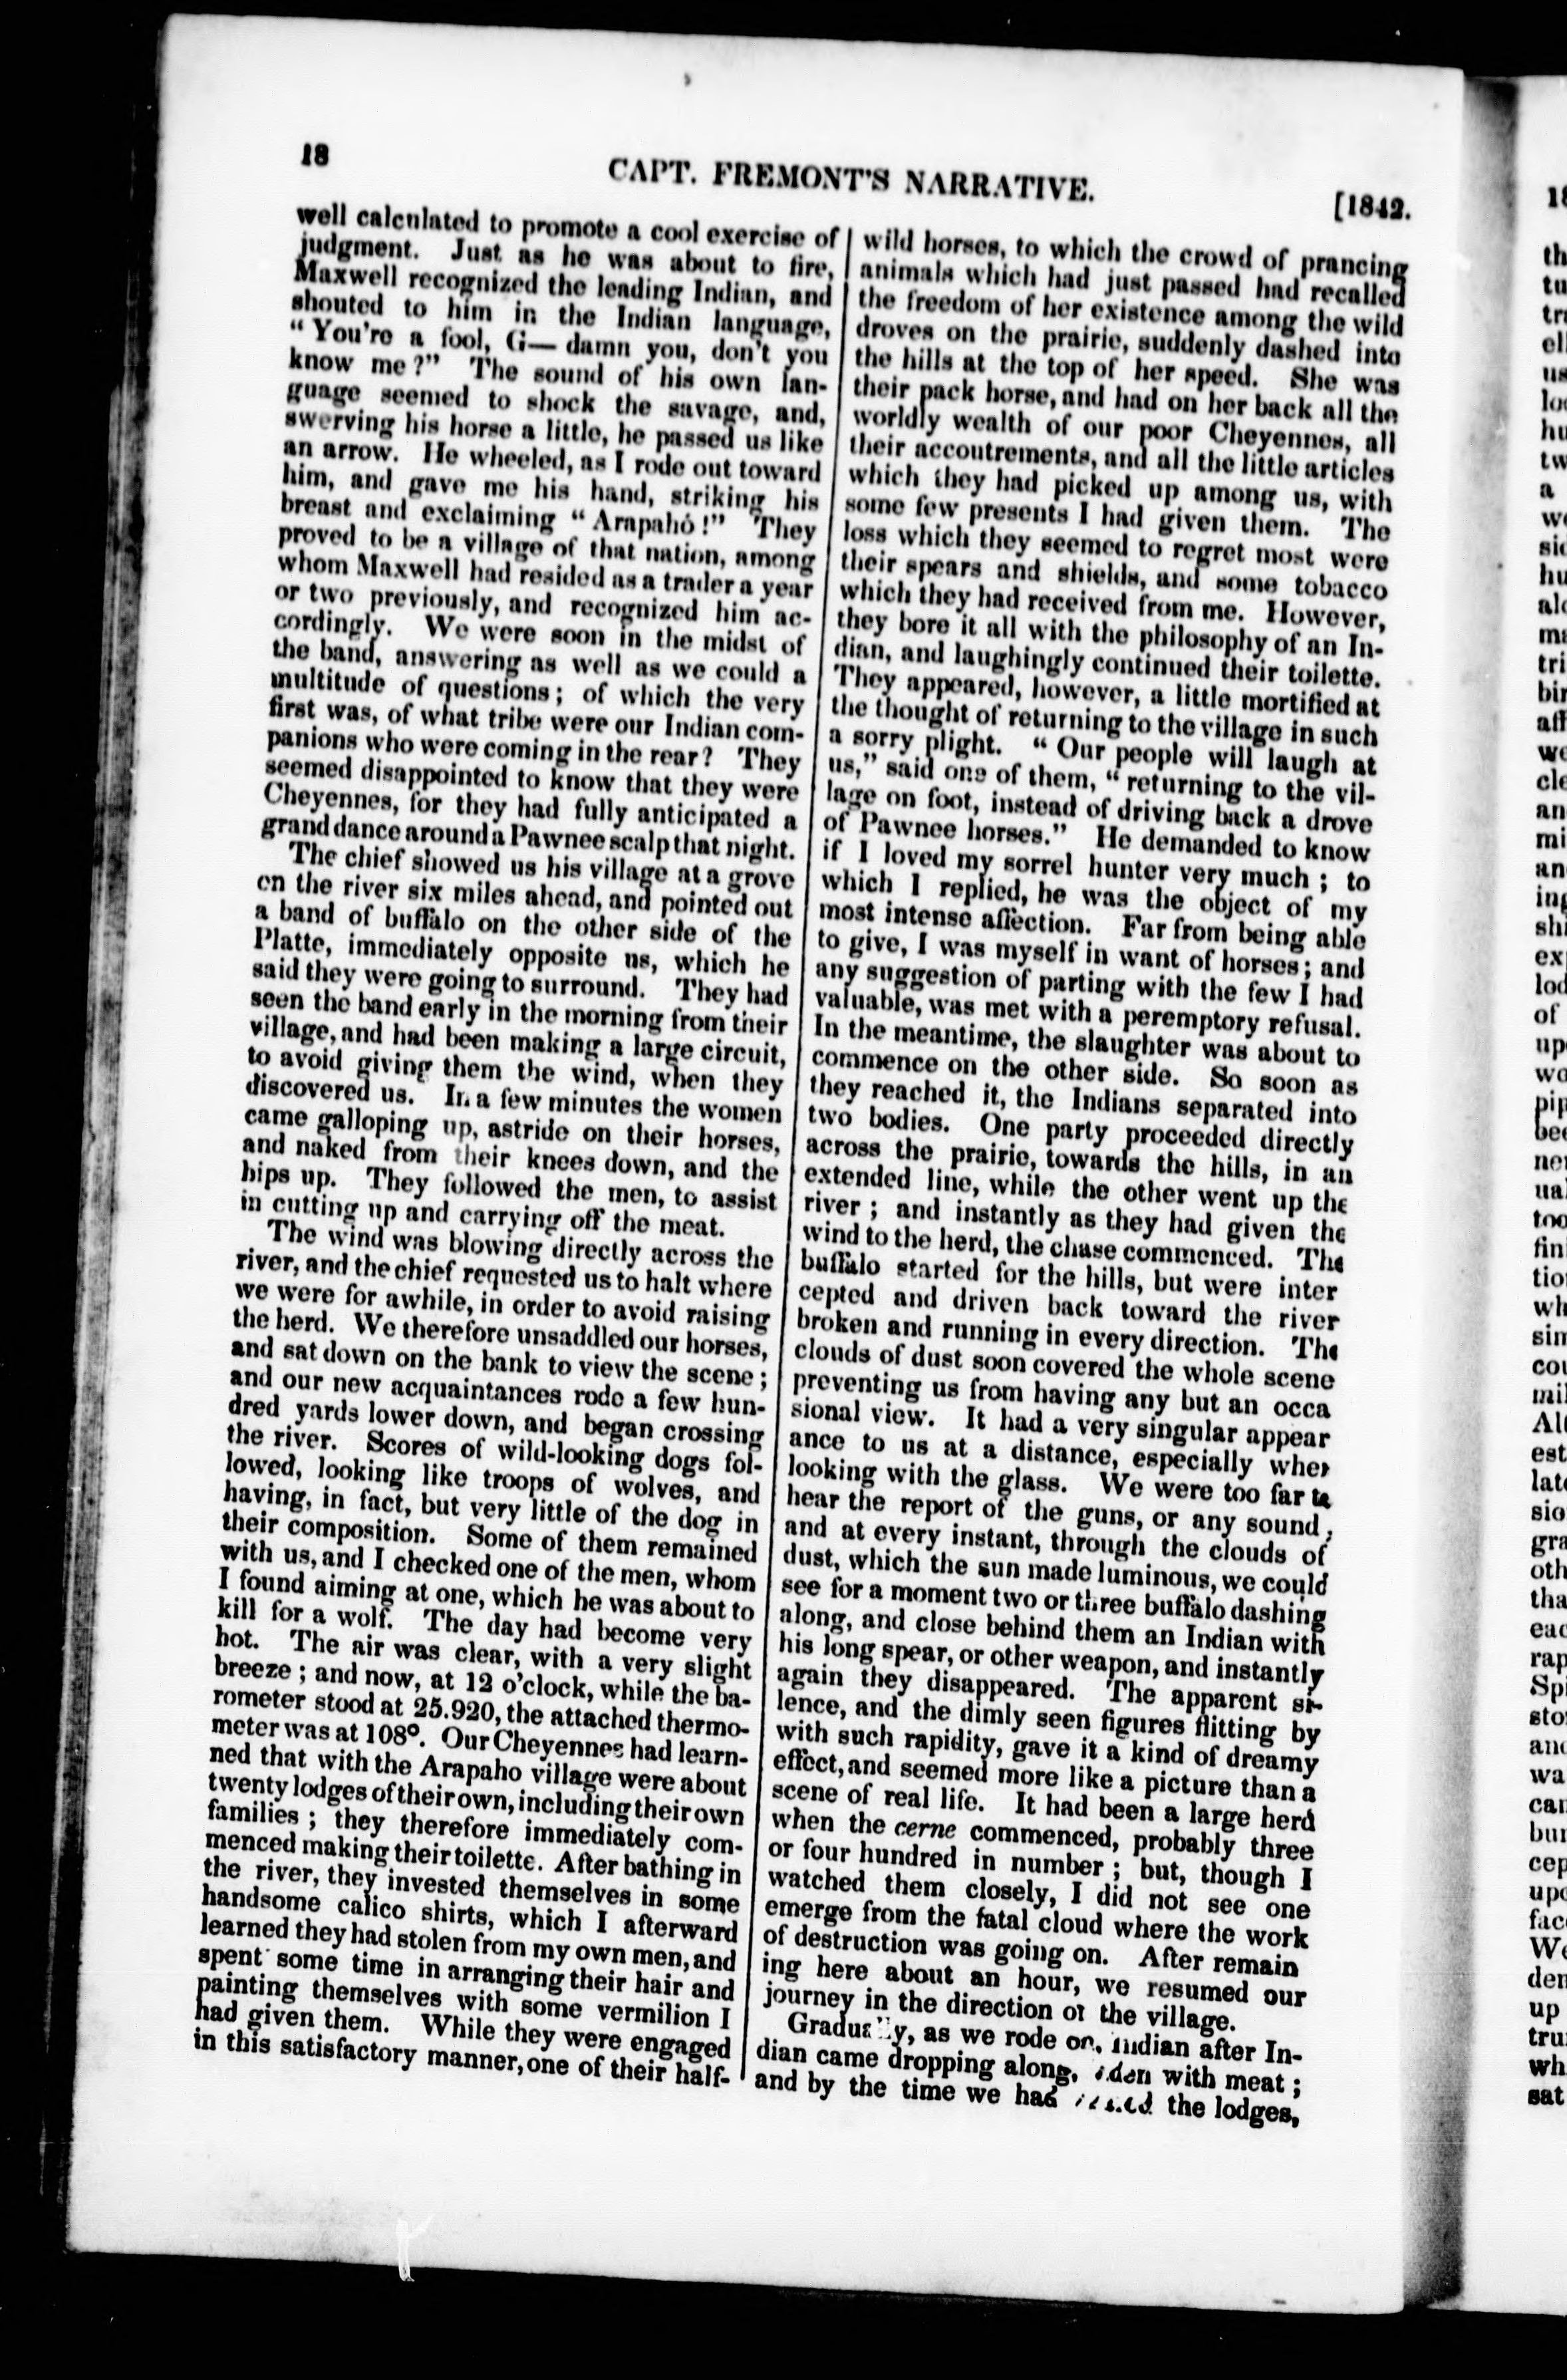 18
CAPT. FREMONT'S NARRATIVE.
[1842.
well calculated to promote a cool exercise of
judgment. Just as he was about to fire,
Maxwell recognized the leading Indian, and
shouted to him in the Indian language,
"You're a fool, G— damn you, don't you
know me?" The sound of his own lan-
guage seemed to shock the savage, and,
swerving his horse a little, he passed us like
an arrow. He wheeled, as I rode out toward
him, and gave me his hand, striking his
breast and exclaiming "Arapahó!" They
proved to be a village of that nation, among
whom Maxwell had resided as a trader a year
or two previously, and recognized him ac-
cordingly. We were soon in the midst of
the band, answering as well as we could a
multitude of questions; of which the very
first was, of what tribe were our Indian com-
panions who were coming in the rear? They
seemed disappointed to know that they were
Cheyennes, for they had fully anticipated a
grand dance around a Pawnee scalp that night.
The chief showed us his village at a grove
on the river six miles ahead, and pointed out
a band of buffalo on the other side of the
Platte, immediately opposite us, which he
said they were going to surround. They had
seen the band early in the morning from their
village, and had been making a large circuit,
to avoid giving them the wind, when they
discovered us. In a few minutes the women
came galloping up, astride on their horses,
and naked from their knees down, and the
hips up. They followed the men, to assist
in cutting up and carrying off the meat.
The wind was blowing directly across the
river, and the chief requested us to halt where
we were for awhile, in order to avoid raising
the herd. We therefore unsaddled our horses,
and sat down on the bank to view the scene;
and our new acquaintances rode a few hun-
dred yards lower down, and began crossing
the river. Scores of wild-looking dogs fol-
lowed, looking like troops of wolves, and
having, in fact, but very little of the dog in
their composition. Some of them remained
with us, and I checked one of the men, whom
I found aiming at one, which he was about to
kill for a wolf. The day had become very
hot. The air was clear, with a very slight
breeze; and now, at 12 o'clock, while the ba-
rometer stood at 25.920, the attached thermo-
meter was at 108°. Our Cheyennes had learn-
ned that with the Arapaho village were about
twenty lodges of their own, including their own
families; they therefore immediately com-
menced making their toilette. After bathing in
the river, they invested themselves in some
handsome calico shirts, which I afterward
learned they had stolen from my own men, and
spent some time in arranging their hair and
painting themselves with some vermilion I
had given them. While they were engaged
in this satisfactory manner, one of their half-
wild horses, to which the crowd of prancing
animals which had just passed had recalled
the freedom of her existence among the wild
droves on the prairie, suddenly dashed into
the hills at the top of her speed. She was
their pack horse, and had on her back all the
worldly wealth of our poor Cheyennes, all
their accoutrements, and all the little articles
which they had picked up among us, with
some few presents I had given them. The
loss which they seemed to regret most were
their spears and shields, and some tobacco
which they had received from me. However,
they bore it all with the philosophy of an In-
dian, and laughingly continued their toilette.
They appeared, however, a little mortified at
the thought of returning to the village in such
a sorry plight. "Our people will laugh at
us," said one of them, "returning to the vil-
lage on foot, instead of driving back a drove
of Pawnee horses." He demanded to know
if I loved my sorrel hunter very much; to
which I replied, he was the object of my
most intense affection. Far from being able
to give, I was myself in want of horses; and
any suggestion of parting with the few I had
valuable, was met with a peremptory refusal.
In the meantime, the slaughter was about to
commence on the other side. So soon as
they reached it, the Indians separated into
two bodies. One party proceeded directly
across the prairie, towards the hills, in an
extended line, while the other went up the
river; and instantly as they had given the
wind to the herd, the chase commenced. The
buffalo started for the hills, but were inter
cepted and driven back toward the river
broken and running in every direction. The
clouds of dust soon covered the whole scene
preventing us from having any but an occa
sional view. It had a very singular appear
ance to us at a distance, especially when
looking with the glass. We were too far to
hear the report of the guns, or any sound;
and at every instant, through the clouds of
dust, which the sun made luminous, we could
see for a moment two or three buffalo dashing
along, and close behind them an Indian with
his long spear, or other weapon, and instantly
again they disappeared. The apparent si-
lence, and the dimly seen figures flitting by
with such rapidity, gave it a kind of dreamy
effect, and seemed more like a picture than a
scene of real life. It had been a large herd
when the cerne commenced, probably three
or four hundred in number; but, though I
watched them closely, I did not see one
emerge from the fatal cloud where the work
of destruction was going on. After remain
ing here about an hour, we resumed our
journey in the direction of the village.
Gradually, as we rode on, Indian after In-
dian came dropping along, with meat;
and by the time we had the lodges,